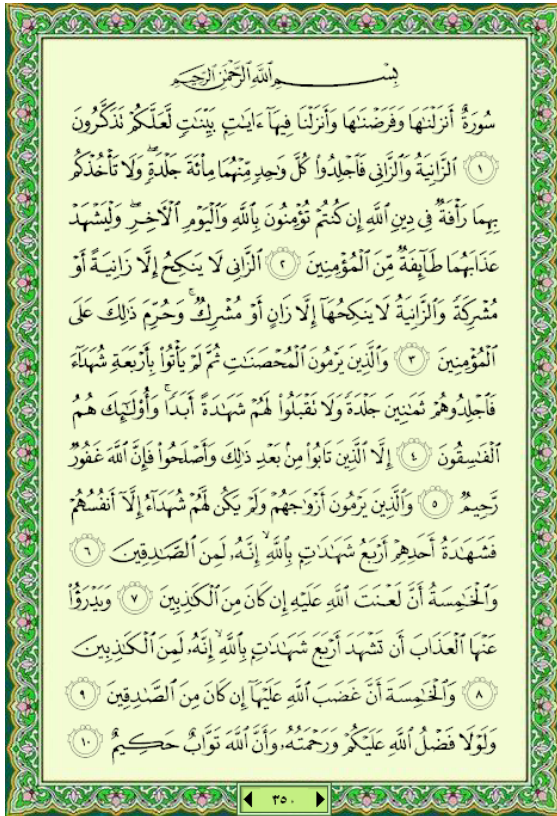 بِسْمِ اللَّهِ الرَّحْمَٰنِ الرَّحِيمِ
سُورَةٌ أَنزَلْنَٰهَا وَفَرَضْنَٰهَا وَأَنزَلْنَا فِيهَآ ءَايَٰتٍۭ بَيِّنَٰتٍ لَّعَلَّكُمْ تَذَكَّرُونَ
١ الزَّانِيَةُ وَالزَّانِى فَاجْلِدُوا۟ كُلَّ وَٰحِدٍ مِّنْهُمَا مِا۟ئَةَ جَلْدَةٍ ۖ وَلَا تَأْخُذْكُم
بِهِمَا رَأْفَةٌ فِى دِينِ اللَّهِ إِن كُنتُمْ تُؤْمِنُونَ بِاللَّهِ وَالْيَوْمِ الْـَٔاخِرِ ۖ وَلْيَشْهَدْ
عَذَابَهُمَا طَآئِفَةٌ مِّنَ الْمُؤْمِنِينَ ٢ الزَّانِى لَا يَنكِحُ إِلَّا زَانِيَةً أَوْ
مُشْرِكَةً وَالزَّانِيَةُ لَا يَنكِحُهَآ إِلَّا زَانٍ أَوْ مُشْرِكٌ ۚ وَحُرِّمَ ذَٰلِكَ عَلَى
الْمُؤْمِنِينَ ٣ وَالَّذِينَ يَرْمُونَ الْمُحْصَنَٰتِ ثُمَّ لَمْ يَأْتُوا۟ بِأَرْبَعَةِ شُهَدَآءَ
فَاجْلِدُوهُمْ ثَمَٰنِينَ جَلْدَةً وَلَا تَقْبَلُوا۟ لَهُمْ شَهَٰدَةً أَبَدًا ۚ وَأُو۟لَٰٓئِكَ هُمُ
الْفَٰسِقُونَ ٤ إِلَّا الَّذِينَ تَابُوا۟ مِنۢ بَعْدِ ذَٰلِكَ وَأَصْلَحُوا۟ فَإِنَّ اللَّهَ غَفُورٌ
رَّحِيمٌ ٥ وَالَّذِينَ يَرْمُونَ أَزْوَٰجَهُمْ وَلَمْ يَكُن لَّهُمْ شُهَدَآءُ إِلَّآ أَنفُسُهُمْ
فَشَهَٰدَةُ أَحَدِهِمْ أَرْبَعُ شَهَٰدَٰتٍۭ بِاللَّهِ ۙ إِنَّهُۥ لَمِنَ الصَّٰدِقِينَ ٦
وَالْخَٰمِسَةُ أَنَّ لَعْنَتَ اللَّهِ عَلَيْهِ إِن كَانَ مِنَ الْكَٰذِبِينَ ٧ وَيَدْرَؤُا۟
عَنْهَا الْعَذَابَ أَن تَشْهَدَ أَرْبَعَ شَهَٰدَٰتٍۭ بِاللَّهِ ۙ إِنَّهُۥ لَمِنَ الْكَٰذِبِينَ
٨ وَالْخَٰمِسَةَ أَنَّ غَضَبَ اللَّهِ عَلَيْهَآ إِن كَانَ مِنَ الصَّٰدِقِينَ ٩
وَلَوْلَا فَضْلُ اللَّهِ عَلَيْكُمْ وَرَحْمَتُهُۥ وَأَنَّ اللَّهَ تَوَّابٌ حَكِيمٌ ١٠
٣٥٠